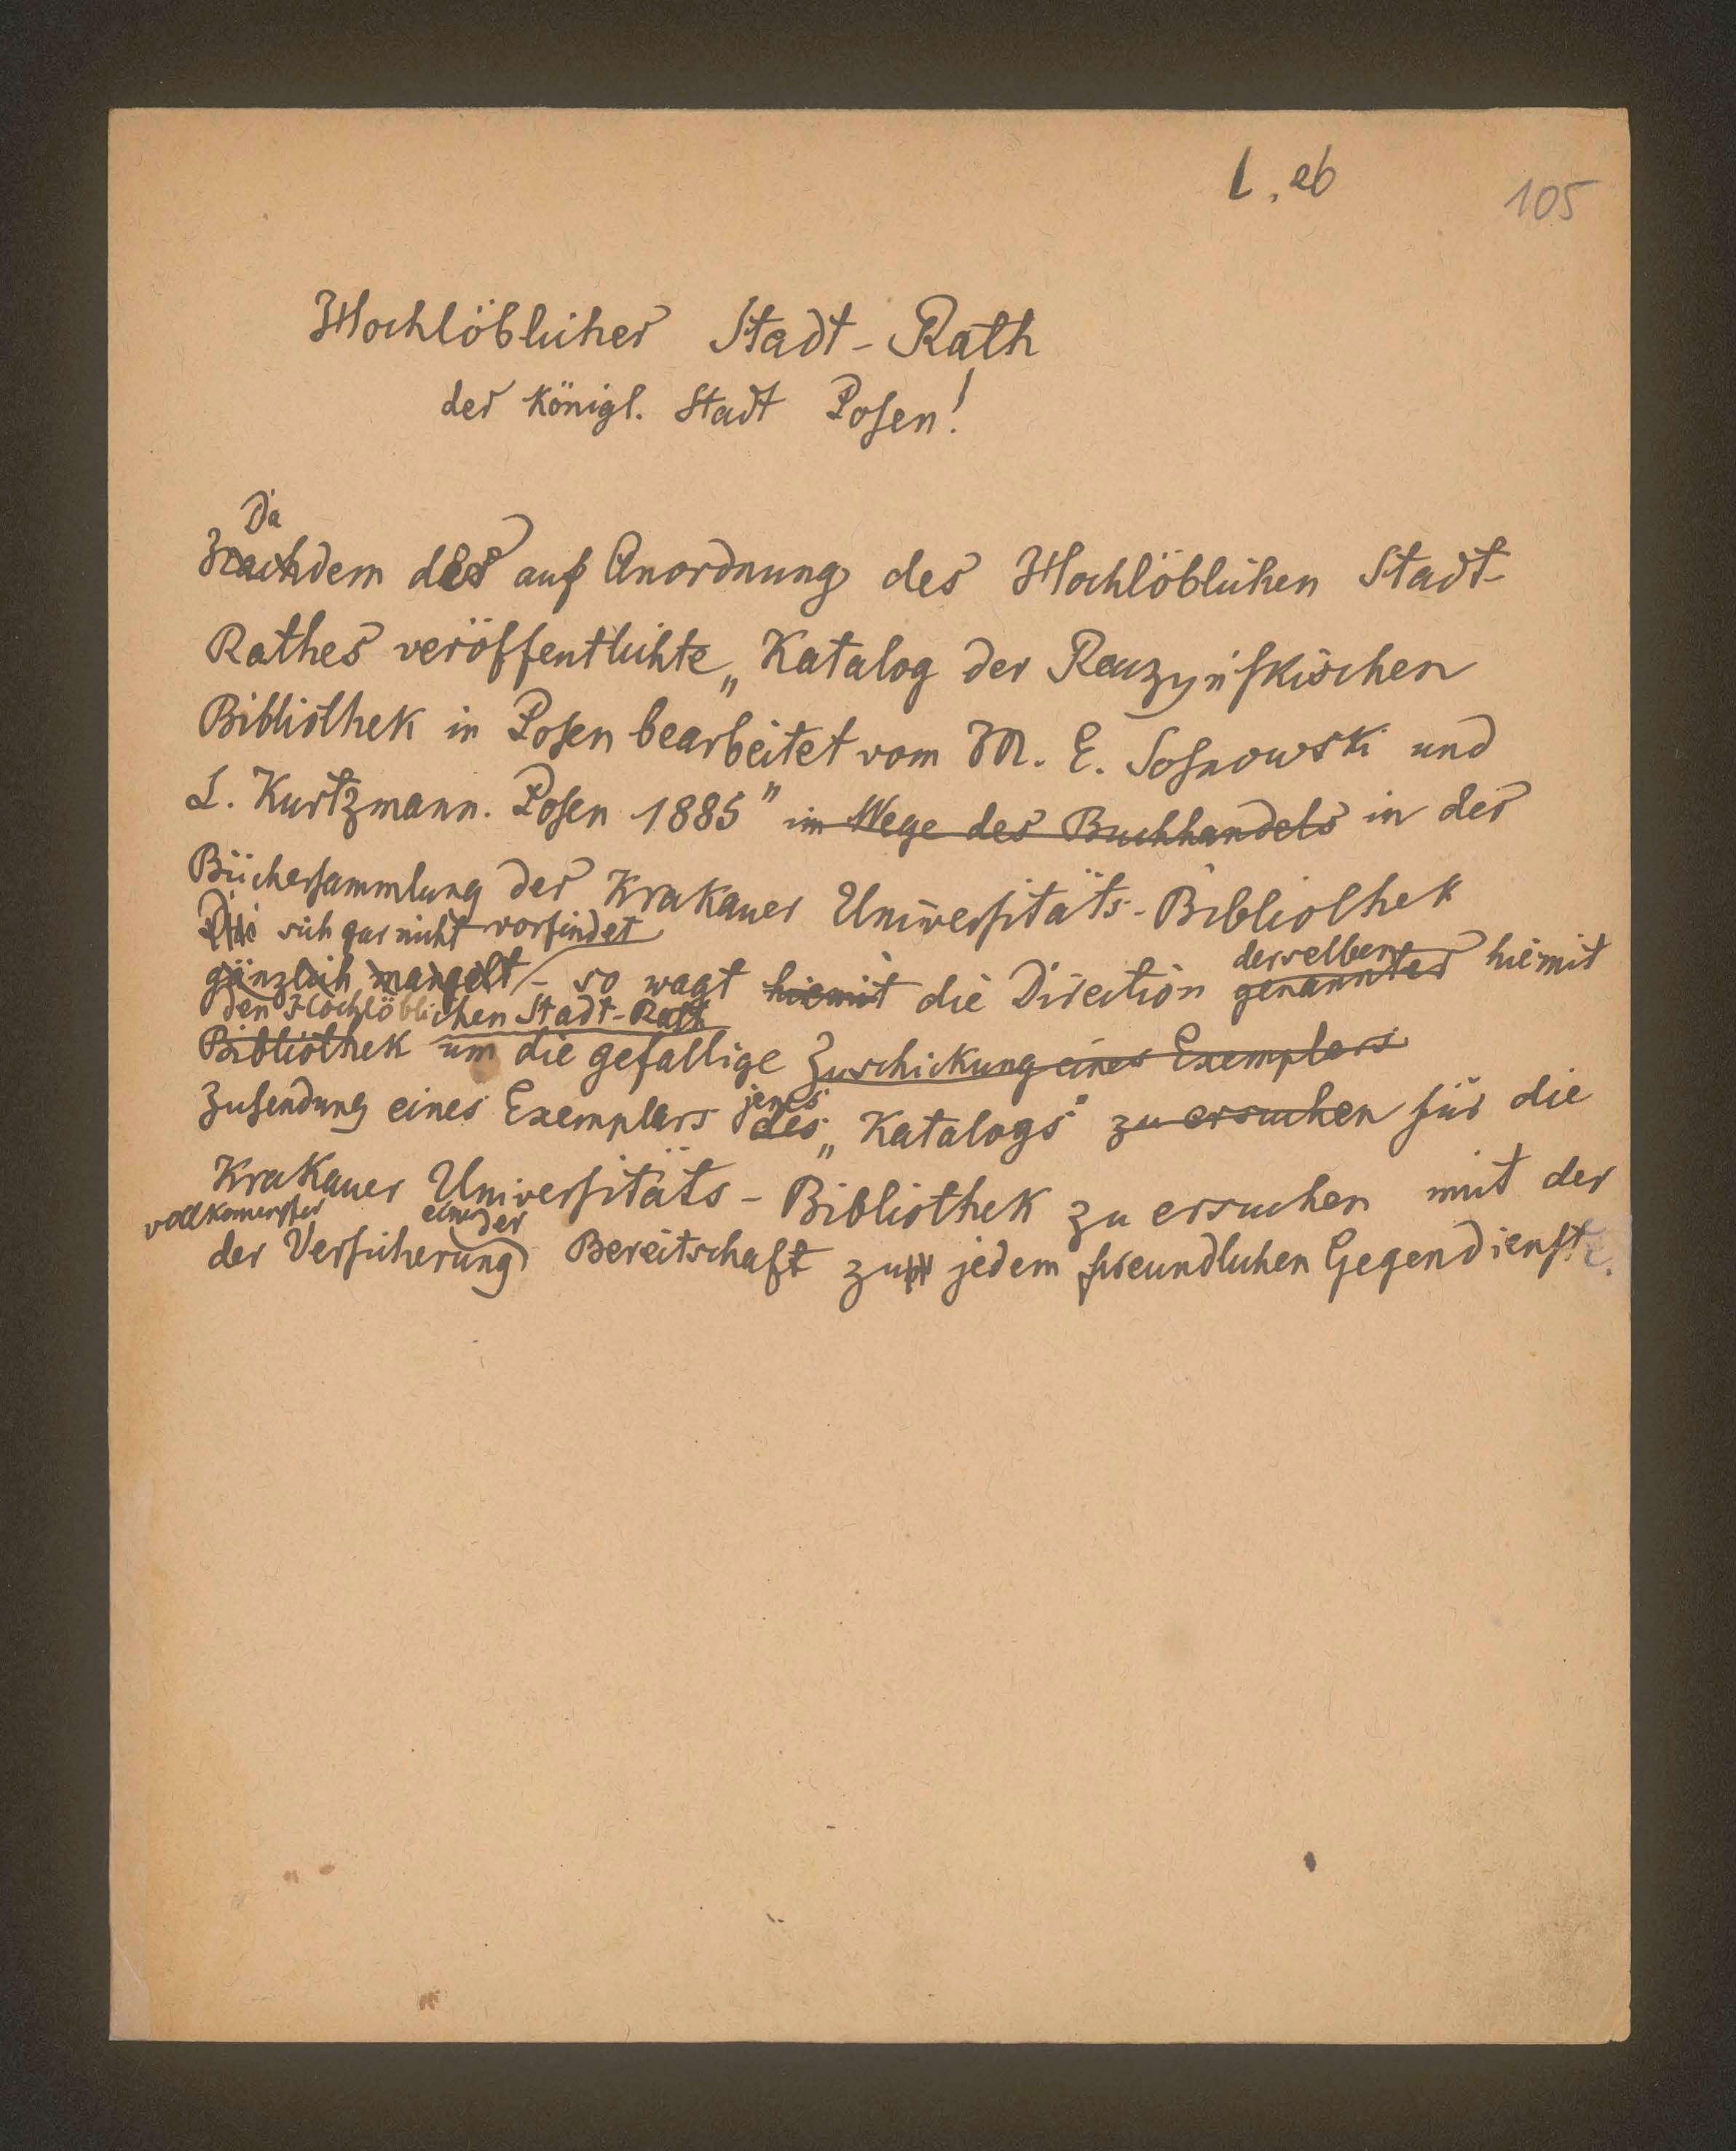 L. eb
105
Hochlöblicher Stadt-Rath
der Königl. Stadt Posen!
Da
Nachdem der auf Anordnung des Hochlöblichen Stadt-
Rathes veröffentlichte „Katalog der Raczyńskischen
Bibliothek in Posen bearbeitet vom M. E. Sosnowski und
L. Kurtzmann. Posen 1885" im Wege des Buchhandels in der
Büchersammlung der Krakauer Universitäts-Bibliothek
sich gar nicht vorfindet
gänzlich mangelt – so wagt hiemit die Direction genannter hiemit
derselben
den Hochlöblichen Stadt-Rath
Bibliothek um die gefällige Zuschickung eines Exemplars
Zusendung eines Exemplars des „Katalogs" zu ersuchen für die
jenes
Krakauer Universitäts-Bibliothek zu ersuchen mit der
vollkomenster einer
der Versicherung der Bereitschaft zu jedem freundlichen Gegendienste.